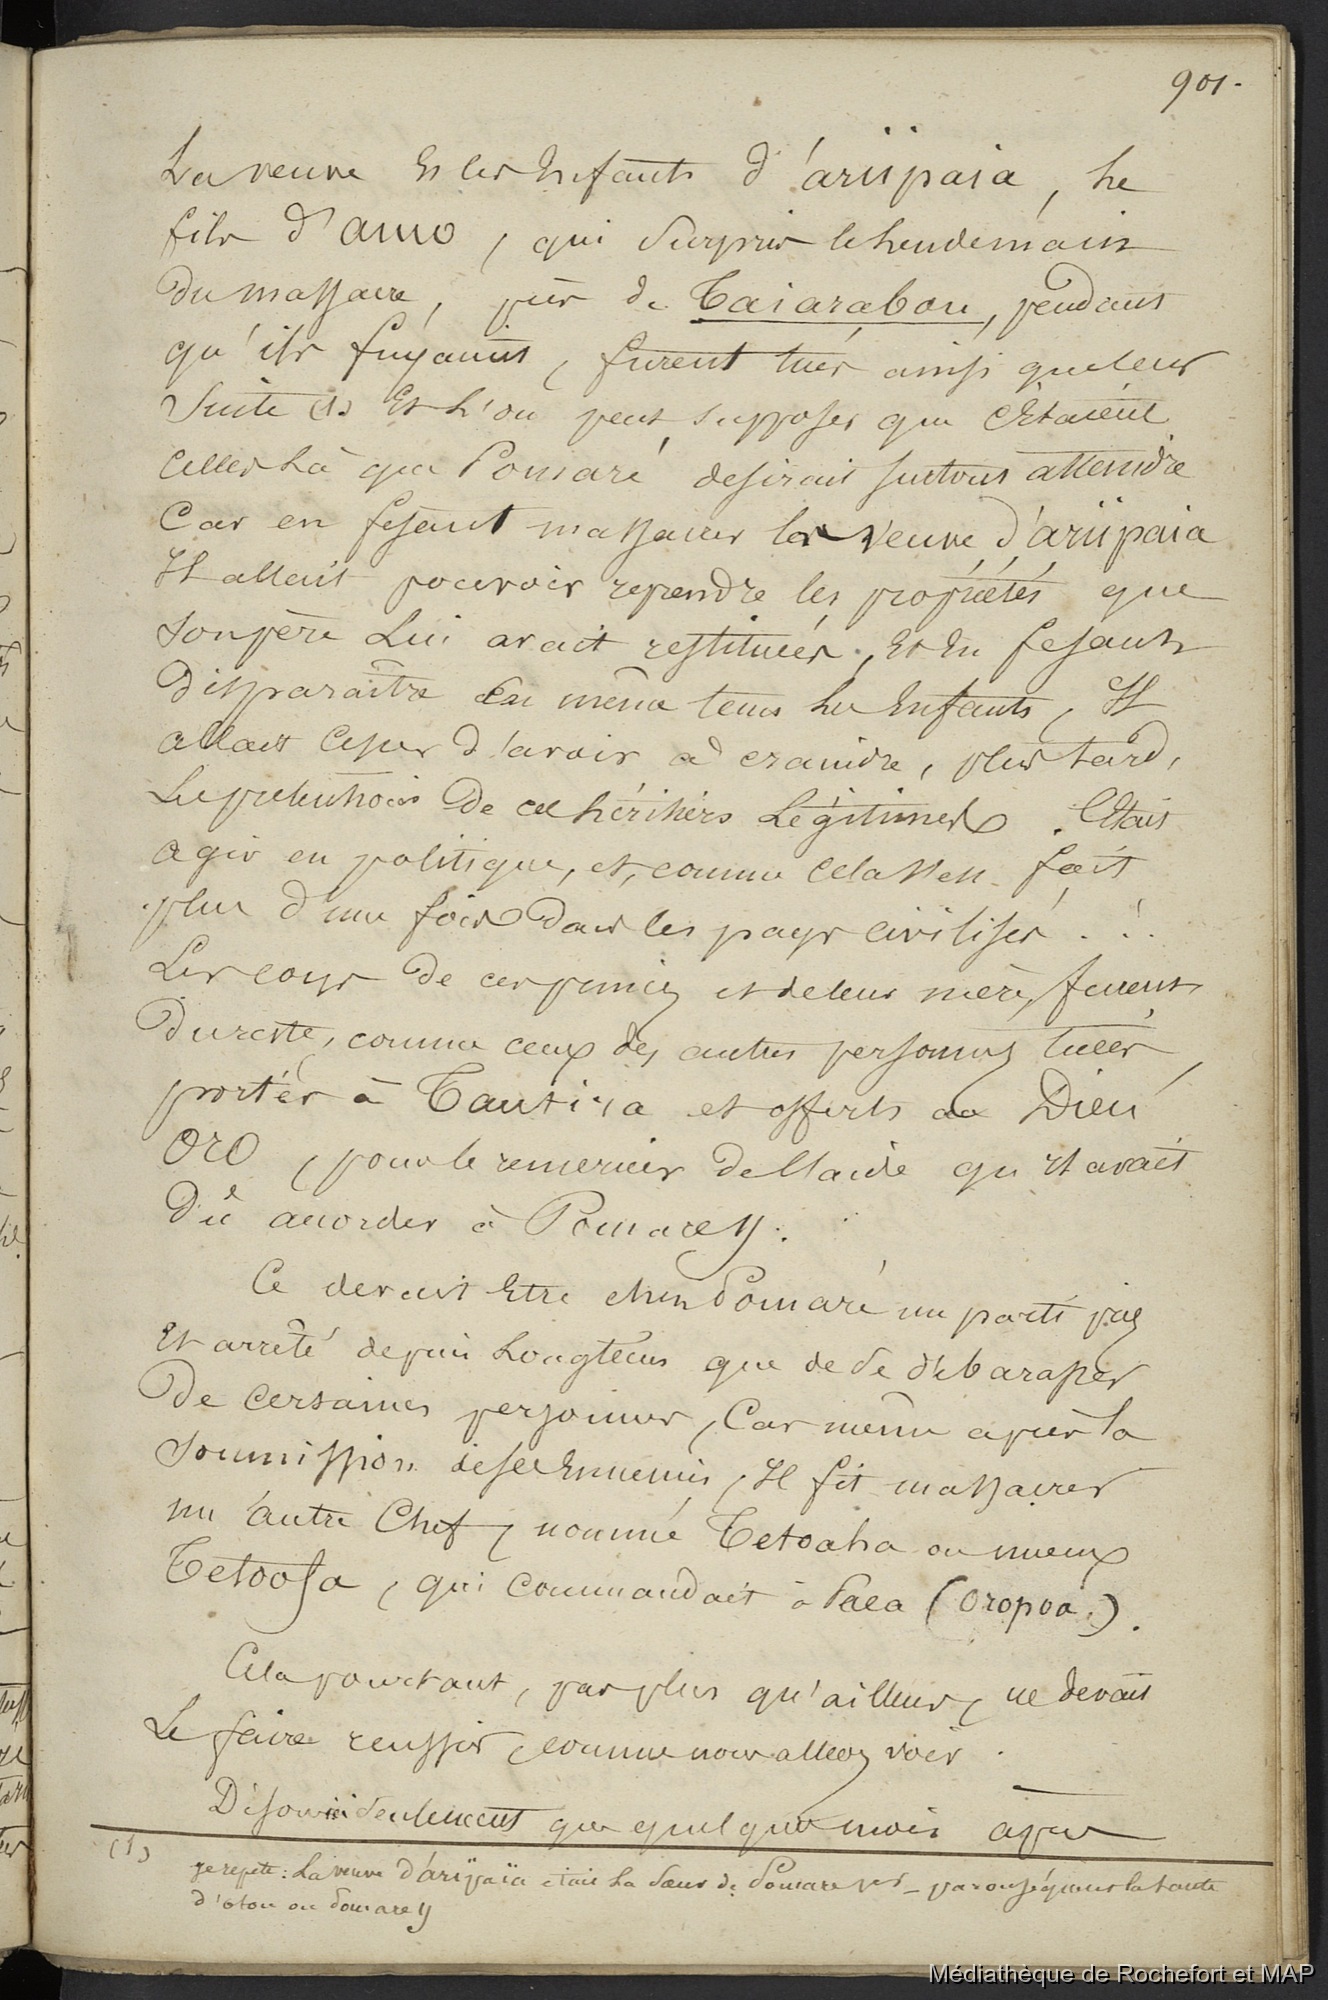 901.
La veuve et les Enfants d'ariipaia, le
fils d'amo, qui surpris le lendemain
du massacre, près de Taiarabou, pendant
qu'ils fuyaient, furent tués ainsi que leur
suite (1) Et l'on peut supposer que c'étaient
celles là que Pomaré désirait surtout atteindre
Car en fesant massacrer la veuve d'ariipaia
Il allait pouvoir reprendre les propriétés que
son père Lui avait restituées, Et En fesant
disparaître en même tems les Enfants, Il
allait cesser d'avoir à craindre, plus tard,
Les prétentions de ces héritiers Légitimes. C'était
agir en politique, et, comme cela s'est fait
plus d'une fois dans les pays civilisés . . !
Les corps de ces princes et de leur mère, furent
du reste, comme ceux des autres personnes tuées
portés à Tautira et offerts au Dieu
Oro, pour le remercier de l'aide qu'il avait
dû accorder à Pomare II.
Ce devait Etre chez Pomaré un parti pris
Et arrêté depuis Longtems que de se débarasser
De certaines personnes, Car même après la
soumission de ses Ennemis, Il fit massacrer
un autre Chef, nommé Tetoaha ou mieux
Tetoofa, qui commandait à Paea (Oropoa.).
Cela pourtant, pas plus qu'ailleurs, ne devait
Le faire reussir, comme nous allons voir.
Disons ici seulement que quelques mois après
(1) je repete: La veuve d'ariipaïa était la sœur de Pomare 1er _ par conséquent la tante
d'otou ou Pomare II
Médiathèque de Rochefort et MAP